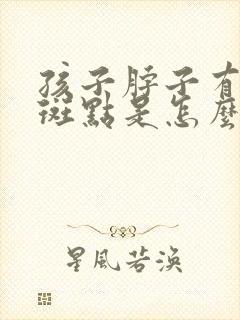 孩子脖子有
斑點是怎麼
星風若渙